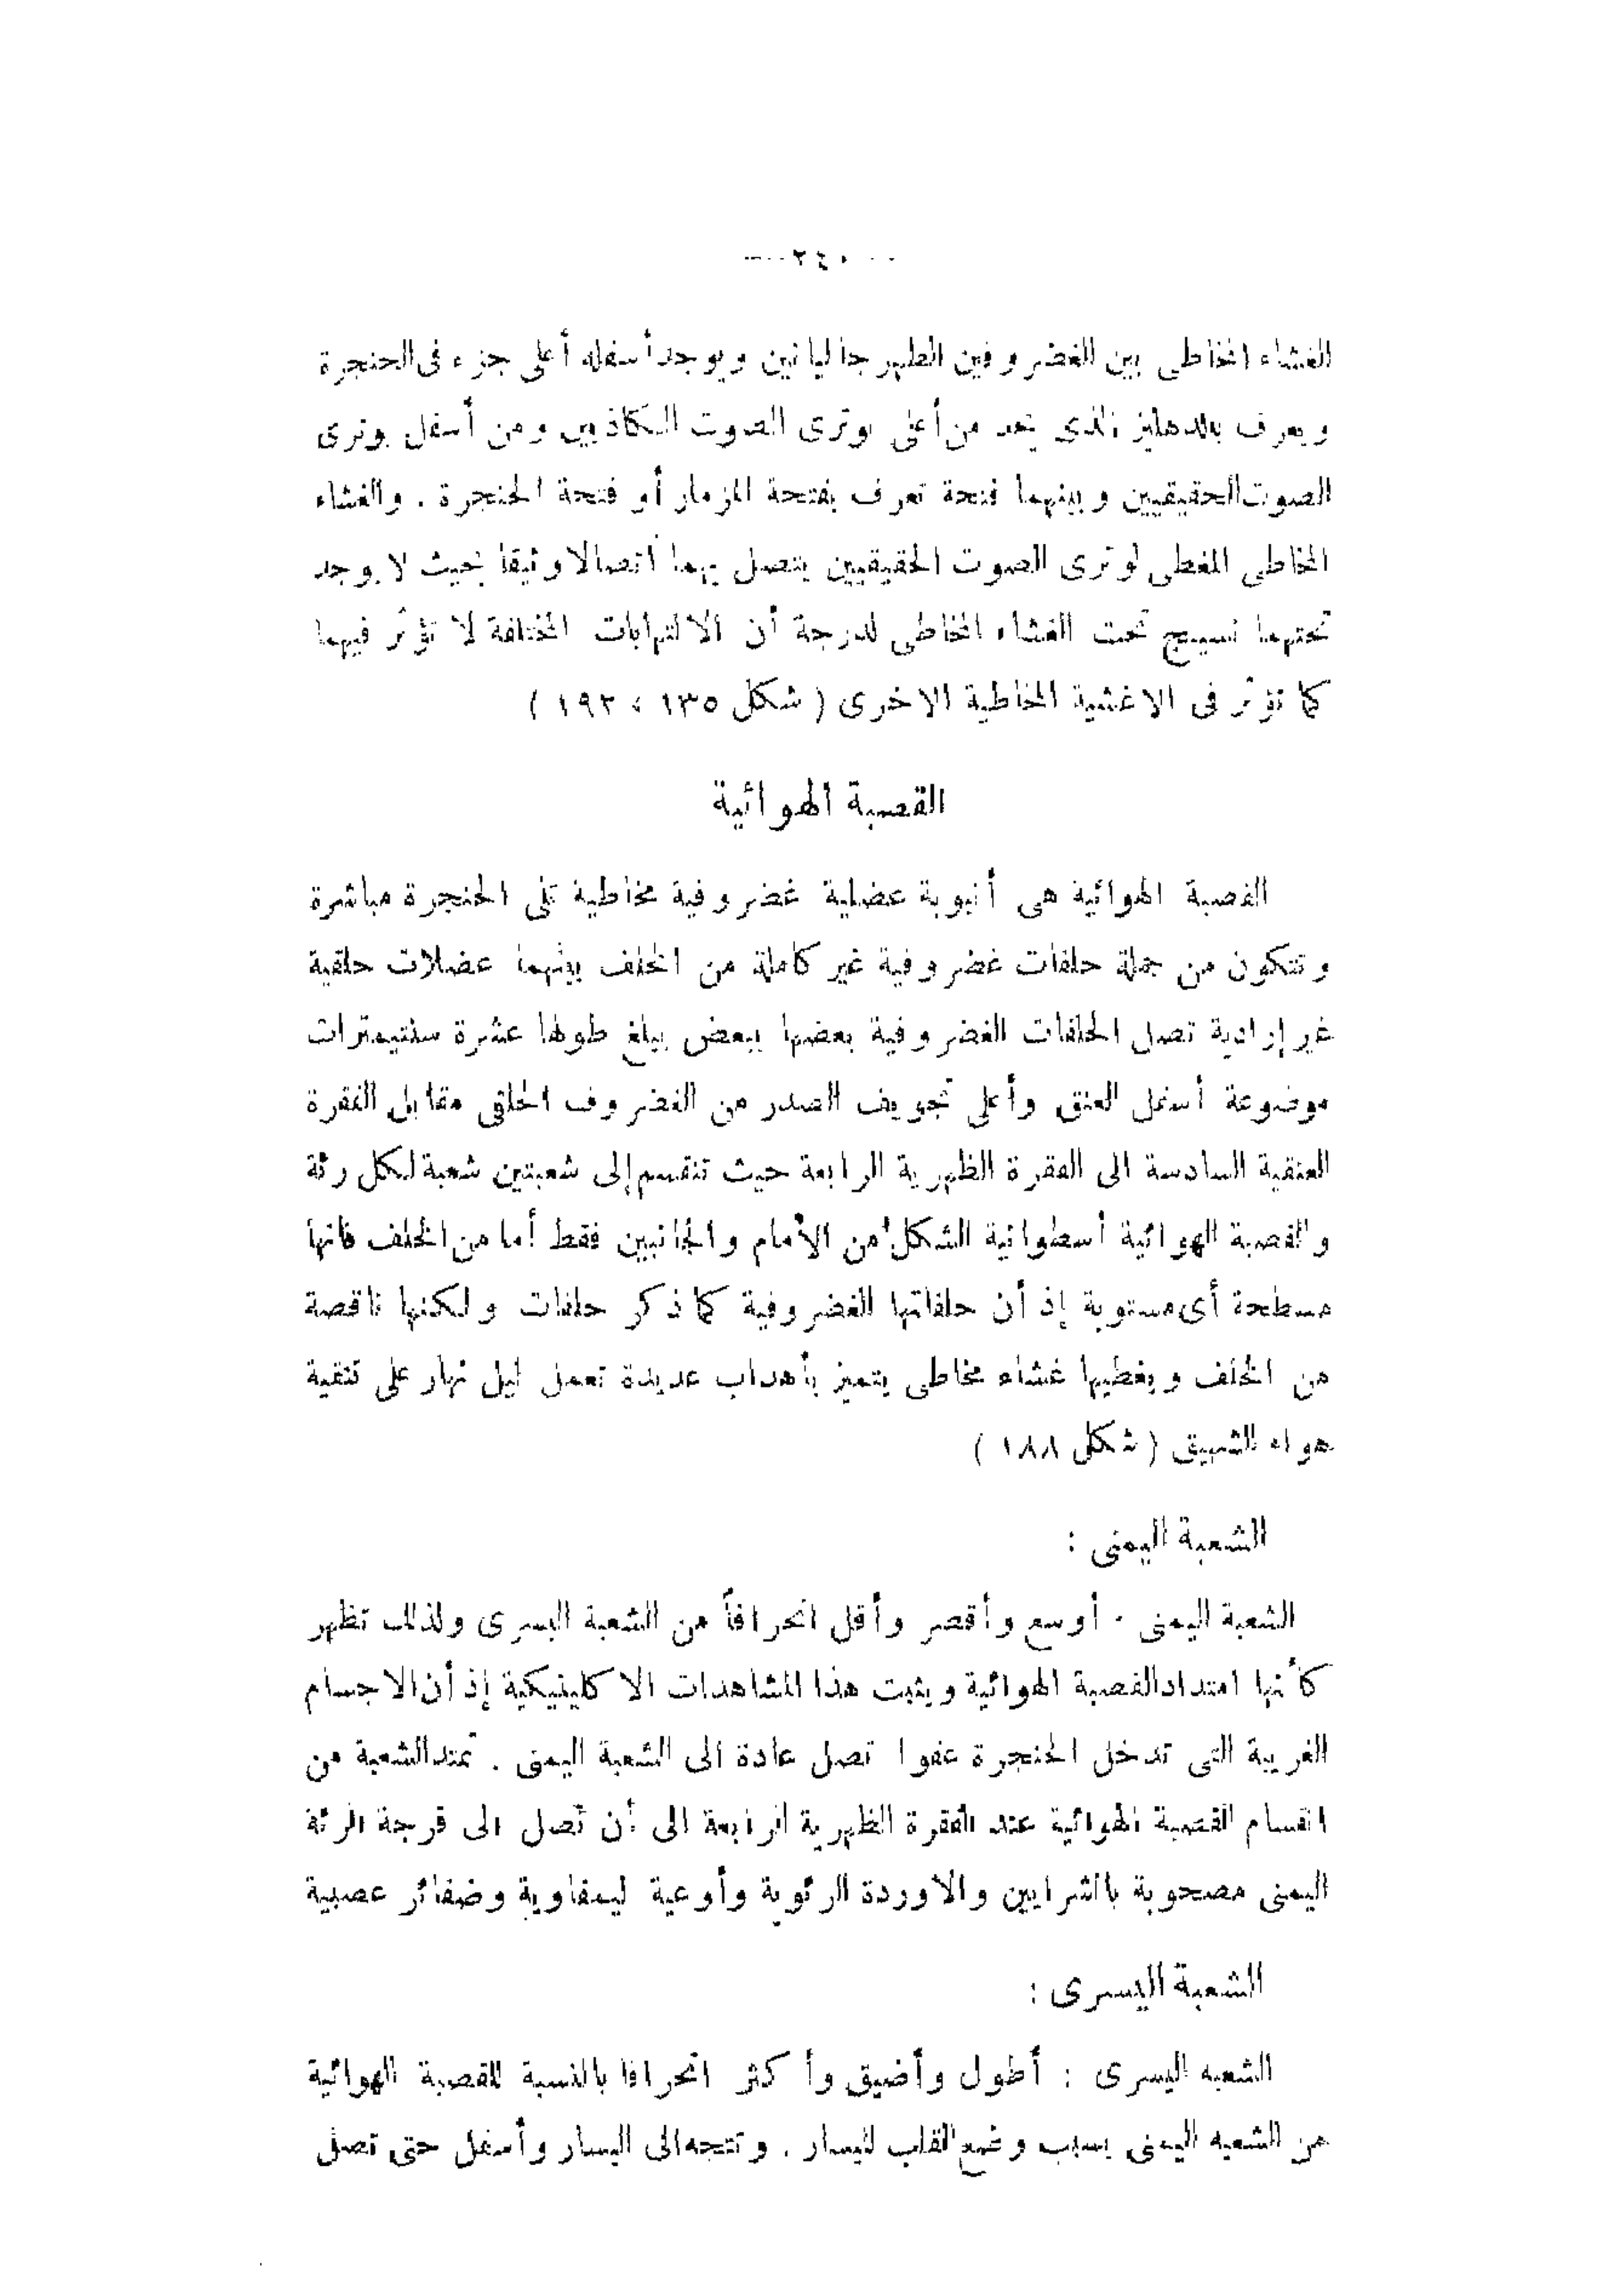 — ٢٤٠ —
الغشاء المخاطى بين الغضروفين الطهرجاليانين ويوجد أسفله أعلى جزء فى الحنجرة
ويعرف بالدهليز الذى يحد من أعلى بوترى الصوت الكاذبين ومن أسفل بوترى
الصوت الحقيقيين وبينهما فتحة تعرف بفتحة المزمار أو فتحة الحنجرة . والغشاء
المخاطى المغطى لوترى الصوت الحقيقيين يتصل بهما اتصالا وثيقا بحيث لا يوجد
تحتهما نسييج تحت الغشاء المخاطى لدرجة أن الالتهابات المختلفة لا تؤثر فيهما
كما تؤثر فى الاغشية المخاطية الاخرى ( شكل ١٣٥ ، ١٩٢ )
القصبة الهوائية
القصبة الهوائية هى أنبوبة عضلية غضروفية مخاطية تلى الحنجرة مباشرة
وتتكون من جملة حلقات غضروفية غير كاملة من الخلف بينهما عضلات حلقية
غير إرادية تصل الحلقات الغضروفية بعضها ببعض يبلغ طولها عشرة سنتيمترات
موضوعة أسفل العنق وأعلى تجويف الصدر من الغضروف الحلقى مقابل الفقرة
العنقية السادسة الى الفقرة الظهرية الرابعة حيث تنقسم إلى شعبتين شعبة لكل رئة
والقصبة الهوائية أسطوانية الشكل من الأمام والجانبين فقط أما من الخلف فانها
مسطحة أى مستوية إذ أن حلقاتها الغضروفية كما ذكر حلقات ولكنها ناقصة
من الخلف ويغطيها غشاء مخاطى يتميز بأهداب عديدة تعمل ليل نهار على تنقية
هواء الشهيق ( شكل ١٨٨ )
الشعبة اليمنى :
الشعبة اليمنى . أوسع وأقصر وأقل انحرافاً من الشعبة اليسرى ولذلك تظهر
كأنها امتداد القصبة الهوائية ويثبت هذا المشاهدات الاكلينيكية إذ أن الاجسام
الغريبة التى تدخل الحنجرة عفوا تصل عادة الى الشعبة اليمنى . تمتد الشعبة من
انقسام القصبة الهوائية عند الفقرة الظهرية الرابعة الى أن تصل الى فرجة الرئة
اليمنى مصحوبة بالشرايين والاوردة الرئوية وأوعية ليمفاوية وضفائر عصبية
الشعبة اليسرى :
الشعبه اليسرى : أطول وأضيق وأكثر انحرافا بالنسبة للقصبة الهوائية
من الشعبه اليمنى بسبب وضع القلب لليسار . وتتجه الى اليسار وأسفل حتى تصل